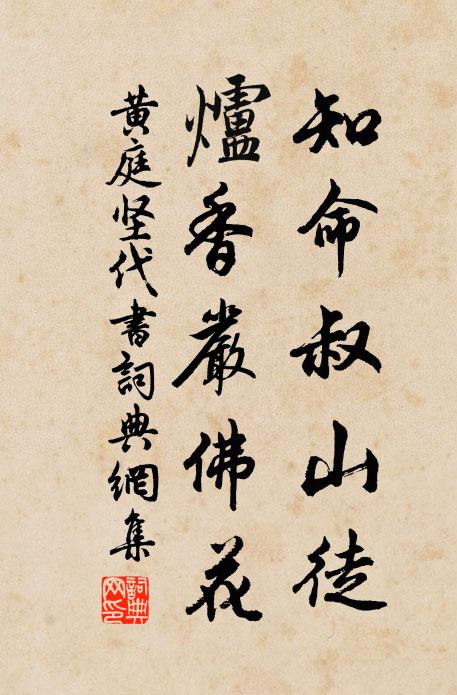 知命叔山徒
爐香嚴佛花
黄庭坚代書詞典網集
詞典
网印